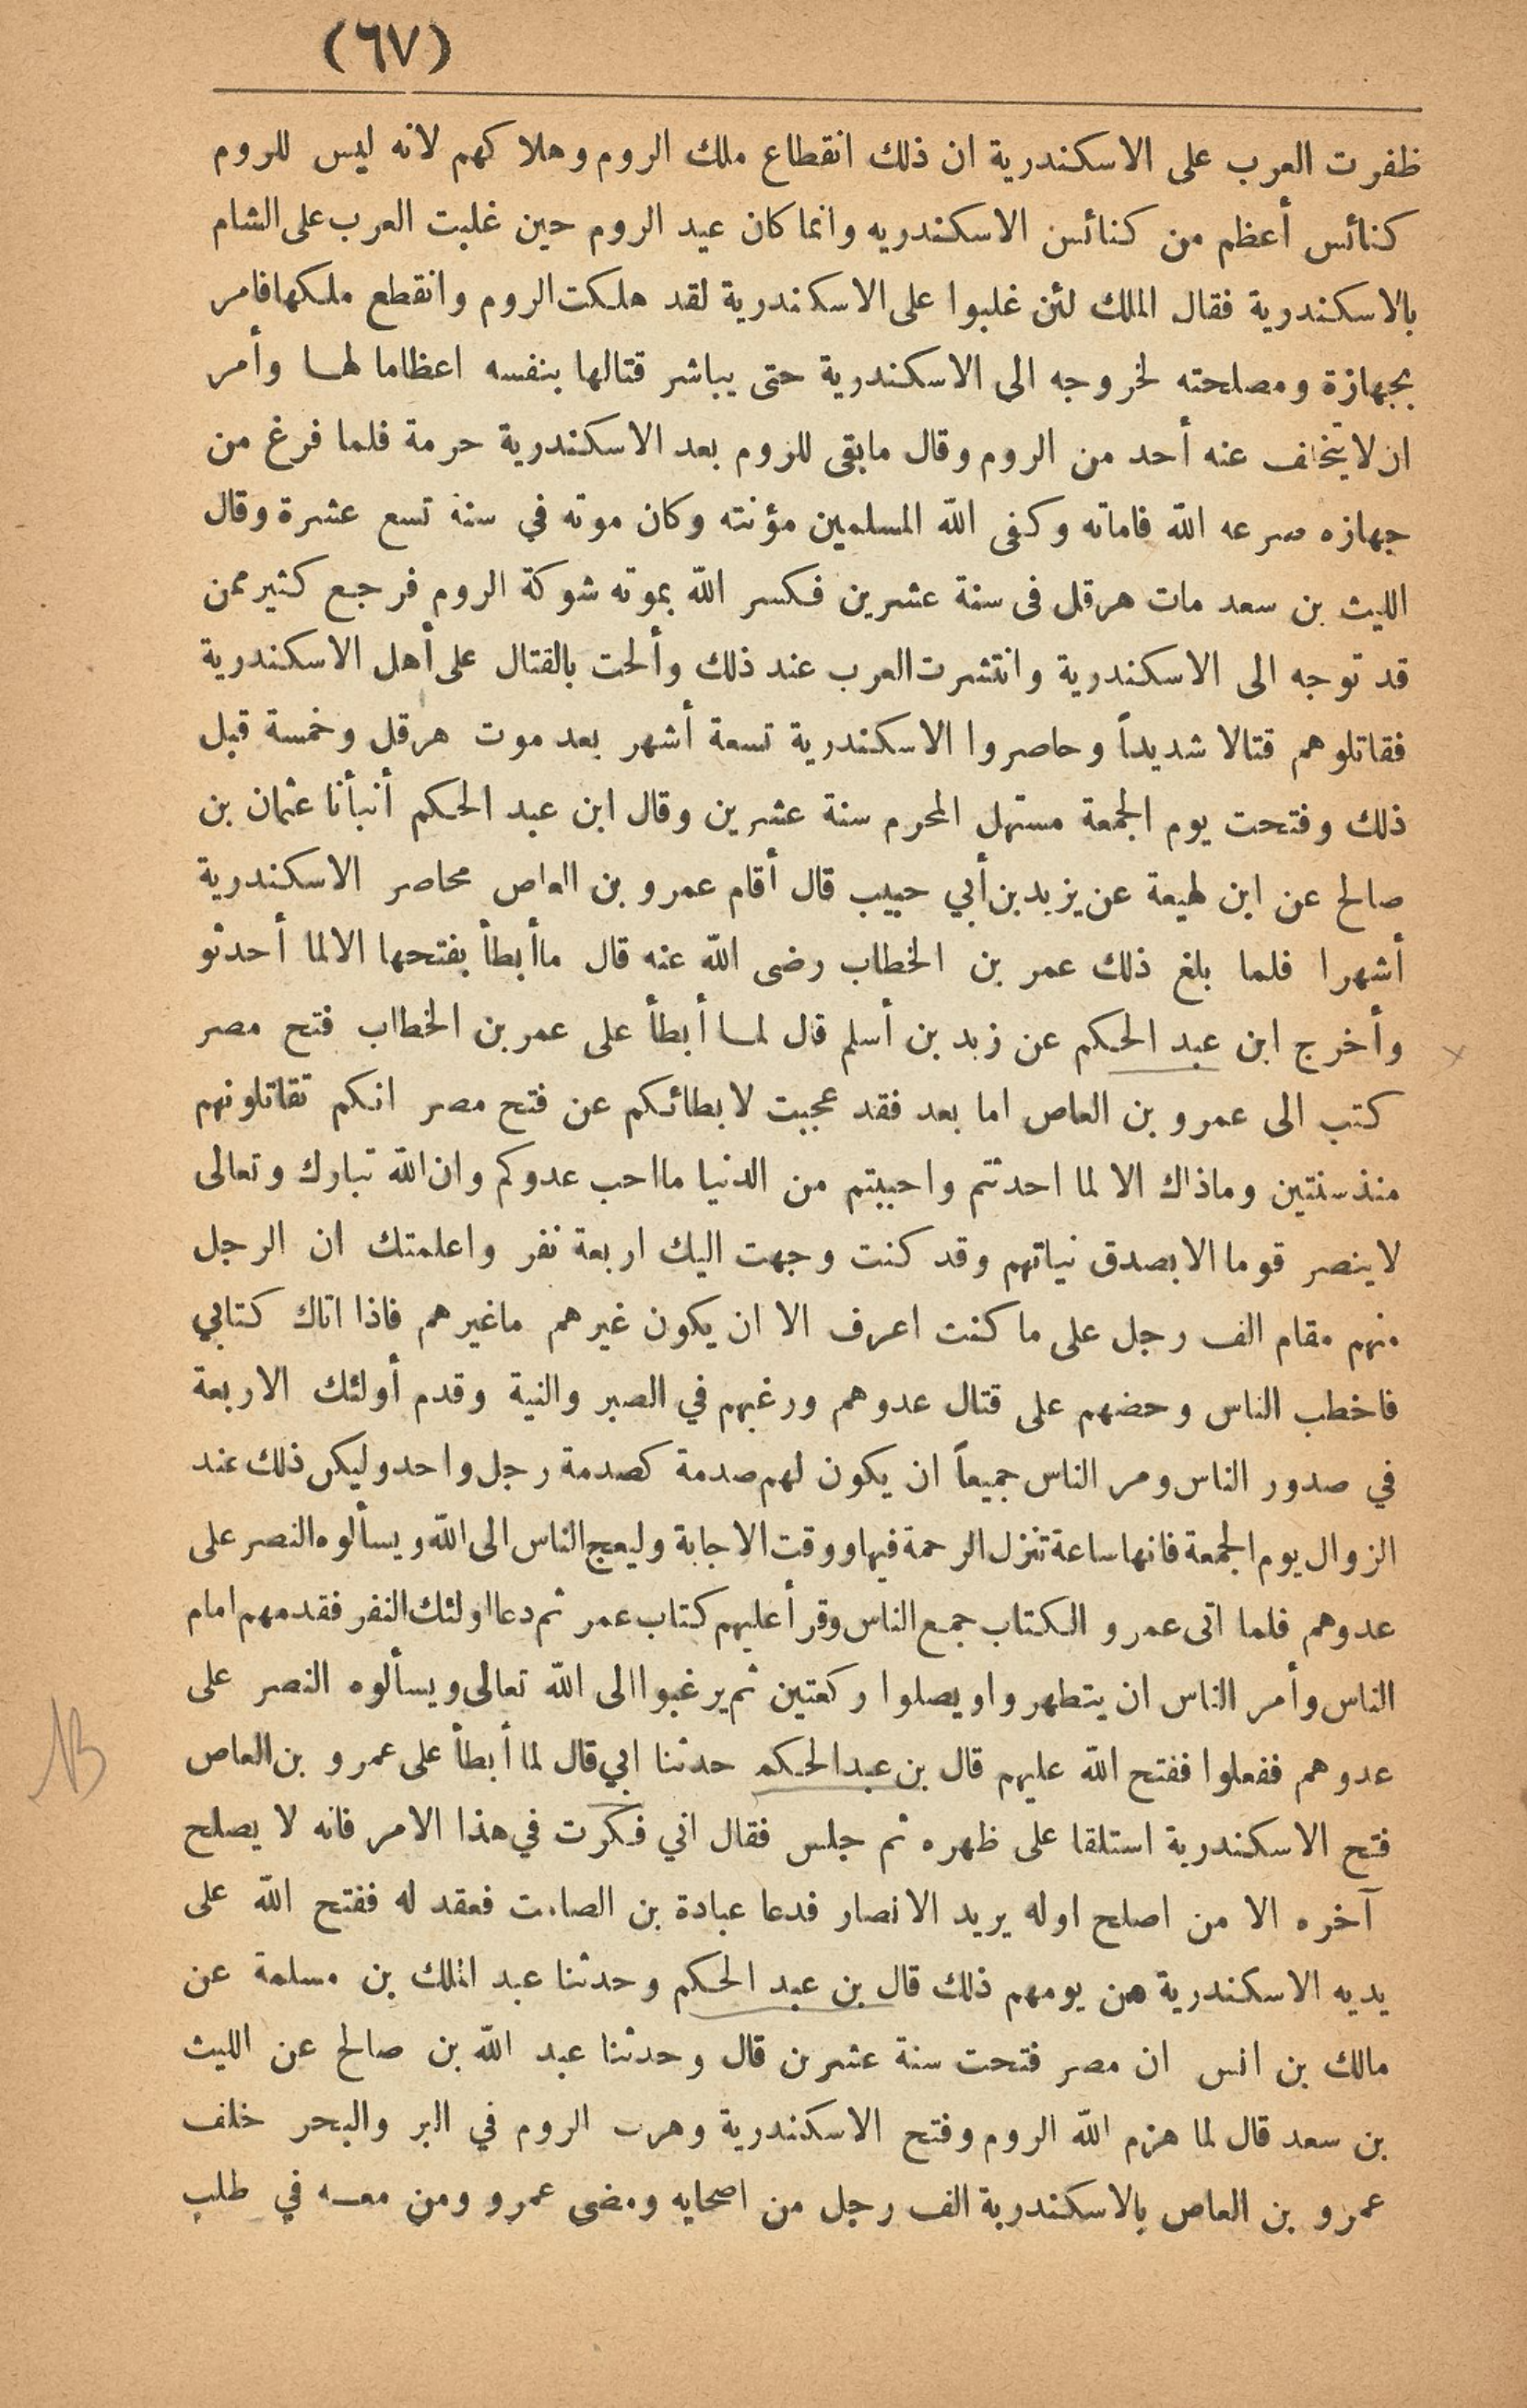 (٦٧)
ظفرت العرب على الاسكندرية ان ذلك انقطاع ملك الروم وهلاكهم لانه ليس للروم
كنائس أعظم من كنائس الاسكندريه وانما كان عيد الروم حين غلبت العرب على الشام
بالاسكندرية فقال الملك لئن غلبوا على الاسكندرية لقد هلكت الروم وانقطع ملكها فامر
بجهازة ومصلحته لخروجه الى الاسكندرية حتى يباشر قتالها بنفسه اعظاما لها وأمر
ان لا يتخلف عنه أحد من الروم وقال مابقى للروم بعد الاسكندرية حرمة فلما فرغ من
جهازه صرعه الله فاماته وكفى الله المسلمين مؤنته وكان موته في سنة تسع عشرة وقال
الليث بن سعد مات هرقل فى سنة عشرين فكسر الله بموته شوكة الروم فرجع كثير ممن
قد توجه الى الاسكندرية وانتشرت العرب عند ذلك وألحت بالقتال على أهل الاسكندرية
فقاتلوهم قتالا شديداً وحاصروا الاسكندرية تسعة أشهر بعد موت هرقل وخمسة قبل
ذلك وفتحت يوم الجمعة مستهل المحرم سنة عشرين وقال ابن عبد الحكم أنبأنا عثمان بن
صالح عن ابن لهيعة عن يزيد بن أبي حبيب قال أقام عمرو بن العاص محاصر الاسكندرية
أشهرا فلما بلغ ذلك عمر بن الخطاب رضى الله عنه قال ماأبطأ بفتحها الا لما أحدثو
وأخرج ابن عبد الحكم عن زيد بن أسلم قال لما أبطأ على عمر بن الخطاب فتح مصر
كتب الى عمرو بن العاص اما بعد فقد عجبت لابطائكم عن فتح مصر انكم تقاتلونهم
منذ سنتين وماذاك الا لما احدثتم واحببتم من الدنيا مااحب عدوكم وان الله تبارك وتعالى
لاينصر قوما الا بصدق نياتهم وقد كنت وجهت اليك اربعة نفر واعلمتك ان الرجل
منهم مقام الف رجل على ما كنت اعرف الا ان يكون غيرهم ماغيرهم فاذا اتاك كتابي
فاخطب الناس وحضهم على قتال عدوهم ورغبهم في الصبر والنية وقدم أولئك الاربعة
في صدور الناس ومر الناس جميعاً ان يكون لهم صدمة كصدمة رجل واحد وليكن ذلك عند
الزوال يوم الجمعة فانها ساعة تنزل الرحمة فيها ووقت الاجابة وليعج الناس الى الله ويسألوه النصر على
عدوهم فلما اتى عمرو الكتاب جمع الناس وقرأ عليهم كتاب عمر ثم دعا اولئك النفر فقدمهم امام
الناس وأمر الناس ان يتطهروا ويصلوا ركعتين ثم يرغبوا الى الله تعالى ويسألوه النصر على
عدوهم ففعلوا ففتح الله عليهم قال بن عبد الحكم حدثنا ابي قال لما أبطأ على عمرو بن العاص
فتح الاسكندرية استلقا على ظهره ثم جلس فقال اني فكرت في هذا الامر فانه لا يصلح
آخره الا من اصلح اوله يريد الانصار فدعا عبادة بن الصامت فعقد له ففتح الله على
يديه الاسكندرية من يومهم ذلك قال بن عبد الحكم وحدثنا عبد الملك بن مسلمة عن
مالك بن انس ان مصر فتحت سنة عشرين قال وحدثنا عبد الله بن صالح عن الليث
بن سعد قال لما هزم الله الروم وفتح الاسكندرية وهرب الروم في البر والبحر خلف
عمرو بن العاص بالاسكندرية الف رجل من اصحابه ومضى عمرو ومن معه في طلب
NB